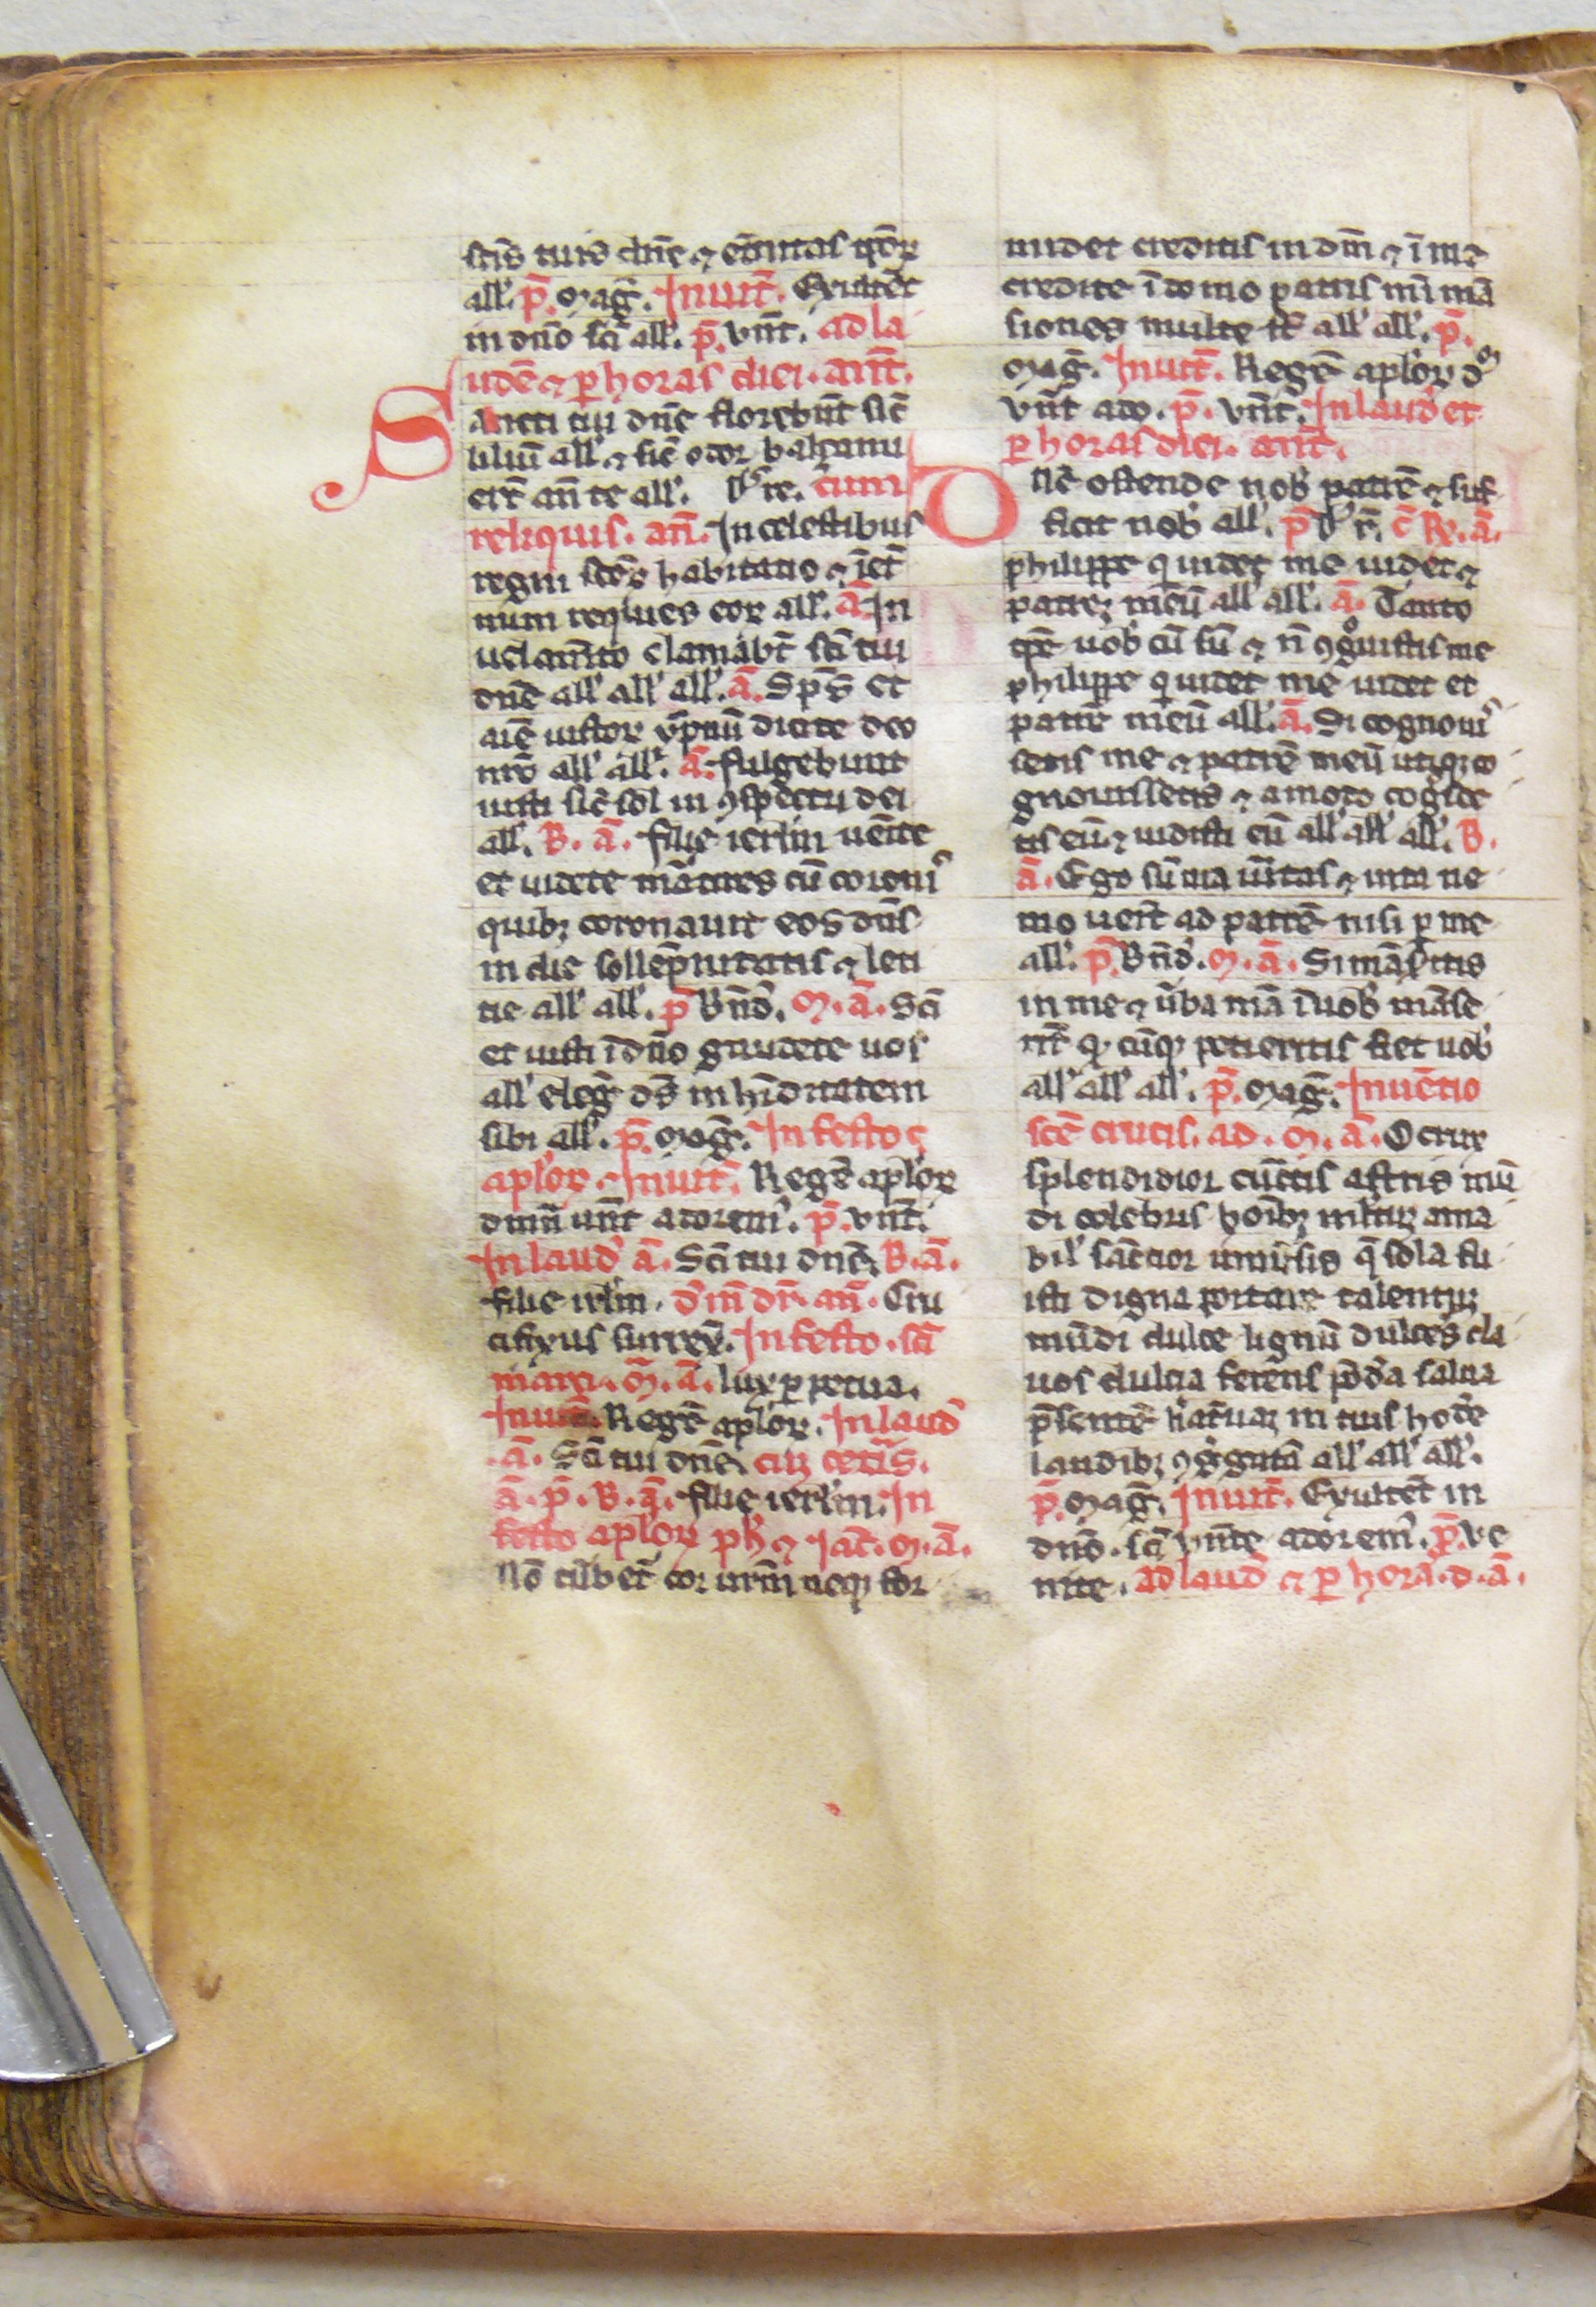 sc̄is tuis dn̄e ⁊ et̄nitas tp̄oꝝ
all'. p̄. mag̅. Inuit̄. Exultēt
in dn̄o sc̄i all'. p̄. vn̄it. ad la
udē ⁊ ꝑ horas diei. ant̄.
Sancti tui dn̄e florebūt sic̄
liliū all' ⁊ sic̄ odor balsami
erūt an̄ te all'. cum
reliquis. an̄. In celestibus
regni scōꝝ habitatio ⁊ ī et̄
num requies eoꝝ all'. ā. In
uelam̄to clamabt̄ sc̄i tui
dn̄e all' all' all'. ā. Sp̄s et
aīe iustoꝝ ymnū dicite deo
nr̄o all' all'. ā. fulgebunt
iusti sic̄ sol in ꝯspectu dei
all'. B. ā. filie ierlm̄ uenite
et uidete mārtires cū coronis
quibꝫ coronauit eos dn̄s
in die sollēpnitatis ⁊ leti
tie all' all'. p̄ Bn̄d'. m. ā. Sc̄i
et iusti ī dn̄o gaudete uos
all' eleg̅ ds̄ in h'editatem
sibi all'. p̄. mag̅. In festo
aploꝝ ⁊ Inuit̄. Regē aploꝝ
dnm̄ un̄t adorem'. p̄. vn̄it.
In laud' ā. Sc̄i tui dn̄e. B. ā.
filie irl̄m. an̄. Cru
cifixus surrex̄. In festo. sc̄i
marci. m. ā. lux ꝑpetua.
Inuit̄. Regē aploꝝ. In laud'
.ā. Sc̄i tui dn̄e, cū cet̄is.
ā. p̄. B. ā. filie ierl̄m. In
festo aploꝝ ph' ⁊ iac̄. m. ā.
Nō t'bet̄ cor ur̄m neqꝫ for
midet creditis in dm̄ ⁊ ī me
credite ī domo patris mī mā
siones multe st̄ all' all'. p̄.
mag̅. Inuit̄. Regē aploꝝ
vn̄it ado. p̄. vn̄it. In laud' et
ꝑ horas diei. ant̄.
Dn̄e ostende nob' patrē ⁊ suf
ficit nob' all'.
philippe qui uidet me uidet ⁊
patrē meū all' all'. ā. Tanto
tp̄e uob'cū sū ⁊ n̄ ꝯgnouistis me
philippe qui uidet me uidet et
patrē meū all'. ā. Si cognoui
setis me ⁊ patrē meū utiqꝫ co
gnouissetis ⁊ amodo cog̅sce
tis eū ⁊ uidistis eū all' all' all'. B.
ā. Ego sū uia ūitas ⁊ uita ne
mo uenit ad patrē nisi ꝑ me
all'. p̄. Bn̄d'. m. ā. Si māseritis
in me ⁊ ūba mā ī uob' māse
rīt qꝫ cūqꝫ petieritis fiet uob'
all' all' all'. p̄. mag̅. Inuētio
sc̄e crucis. ad. m. ā. O crux
splendidior cūctis astris mū
di celebris hoībꝫ ml̄tū ama
bil' sāctior uniūsis q̄ sola fu
isti digna portare talentū
mūdi dulce lignū dulces cla
uos dulcia ferēns pōd'a salua
p̄sentē cat̄uaꝫ in tuis hodie
laudibꝫ ꝯg̅gatā all' all' all'.
p̄. mag̅. Inuit̄. Exultēt in
dn̄o. sc̄i vn̄ite adorem'. p̄. ve
nite. ad laud' ⁊ ꝑ hora. d. ā.